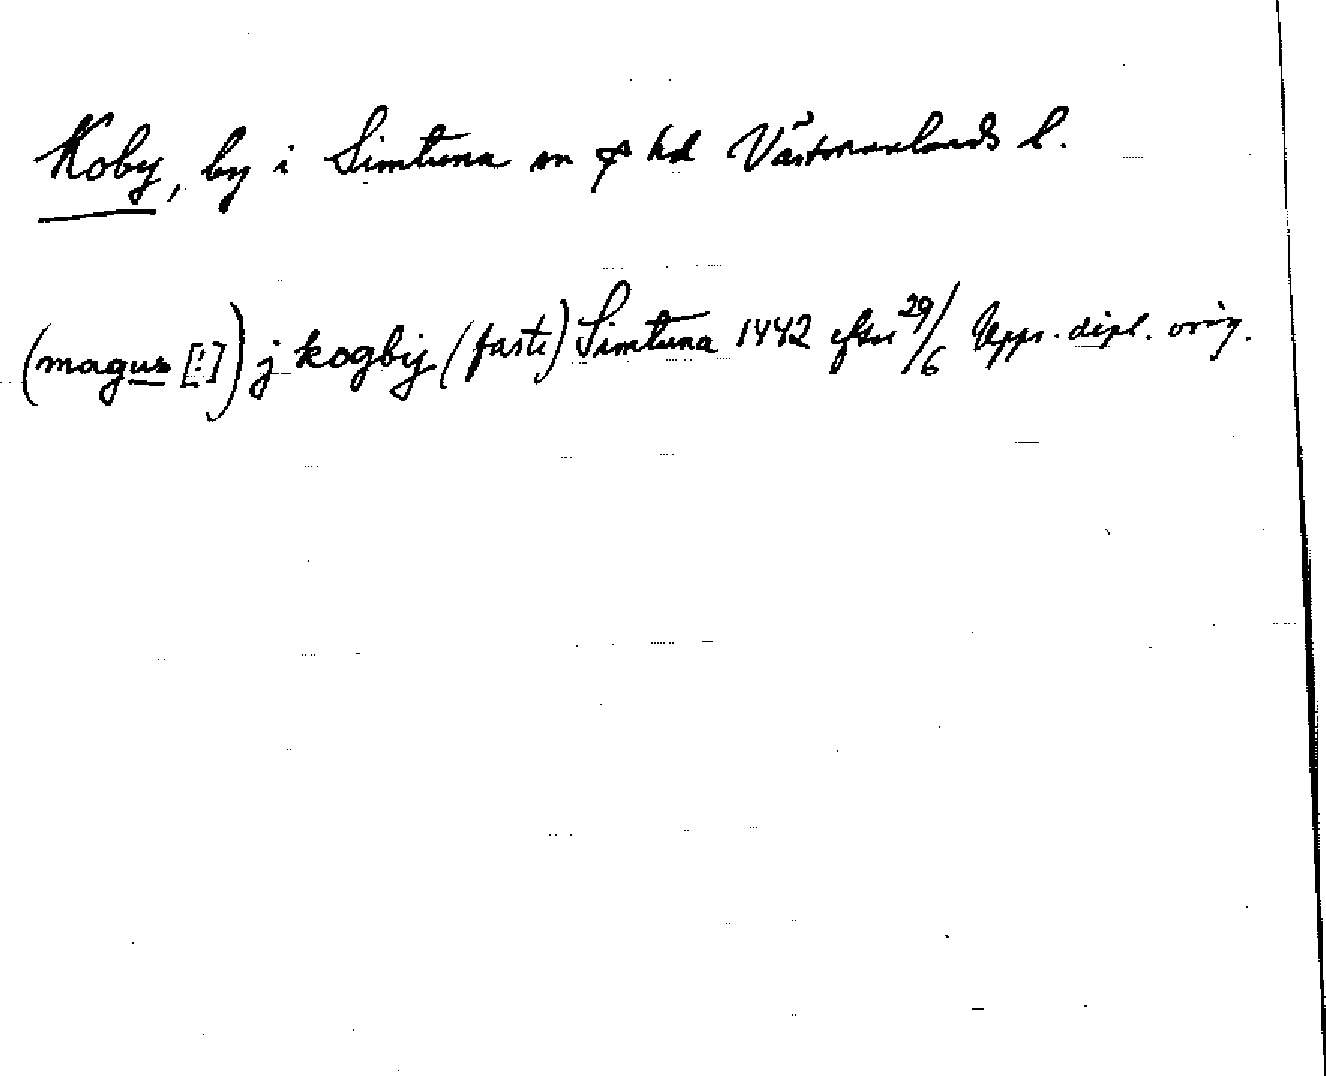 Koby, by i Simtuna sn & hd Västmanlands l.
(magus [!]) j kogbij (faste) Simtuna 1442 efter 29/6 Upps. dipl. orig.